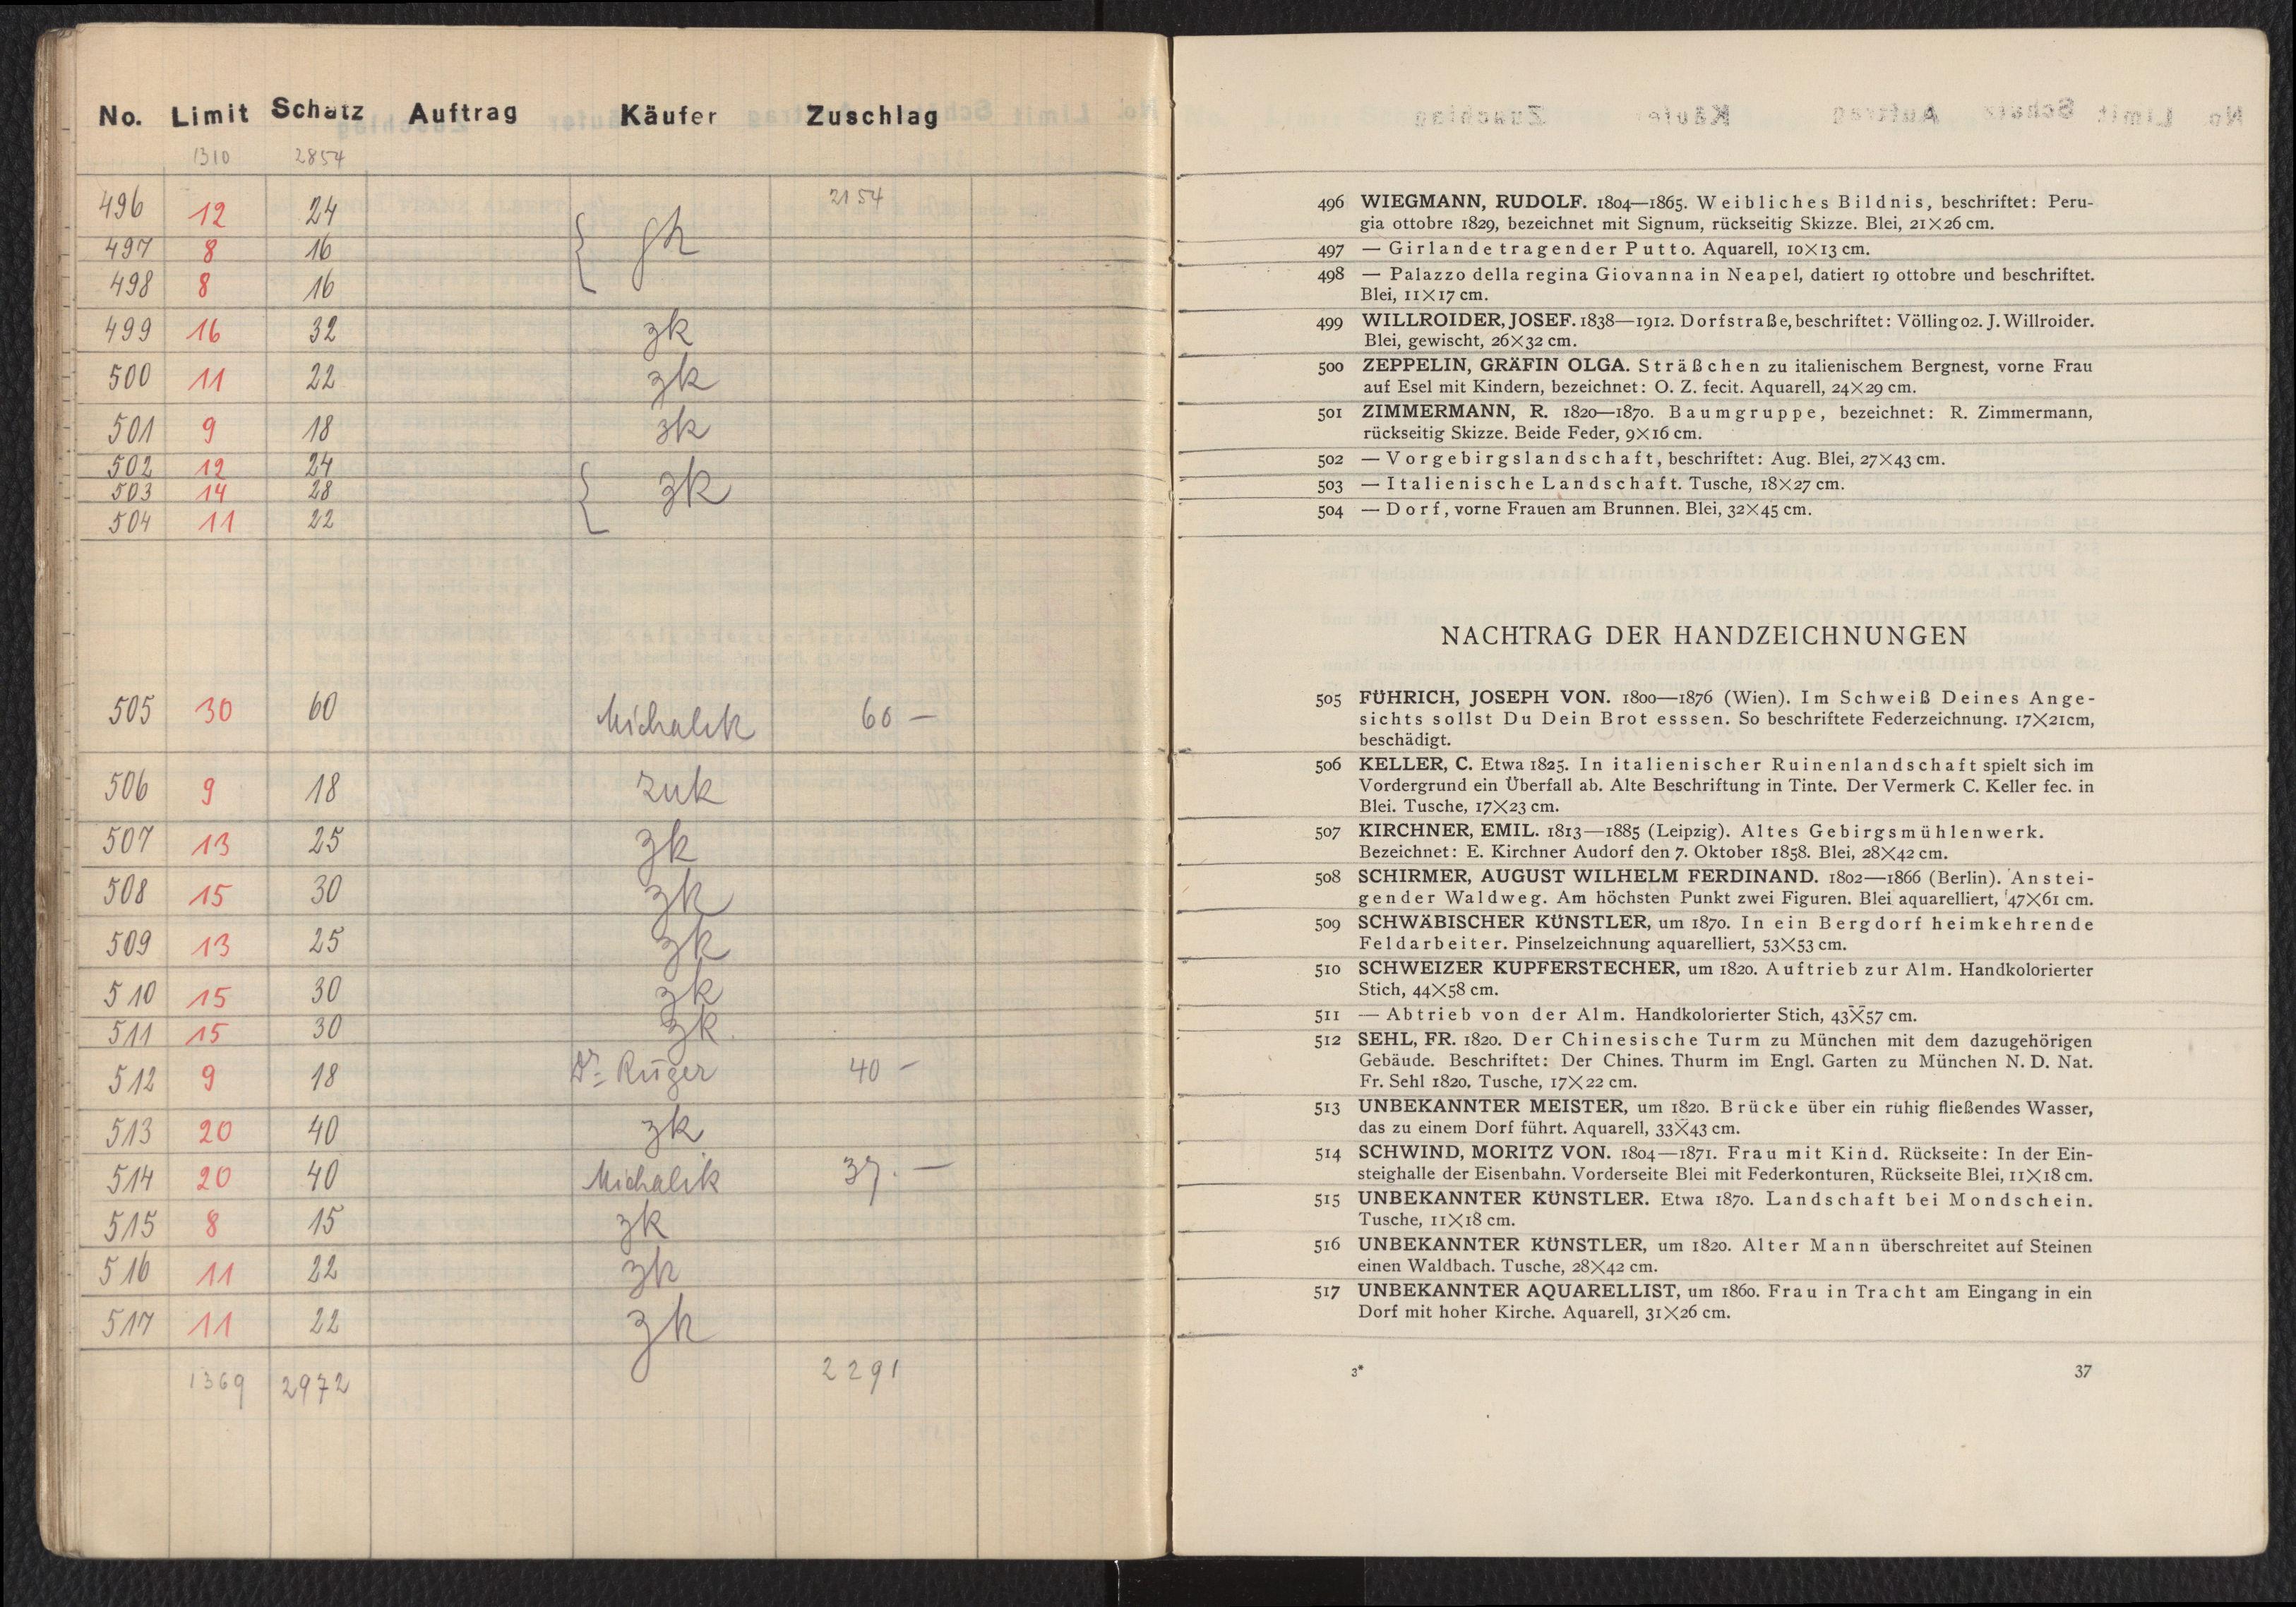 No. Limit Schatz Auftrag Käufer Zuschlag
1310 2854
2154
496 12 24
497 8 16
498 8 16
499 16 32 zk
500 11 22 zk
501 9 18 zk
502 12 24
503 14 28 zk
504 11 22
505 30 60 Michalik 60 —
506 9 18 zuk
507 13 25 zk
508 15 30 zk
509 13 25 zk
510 15 30 zk
511 15 30 zk
512 9 18 Dr. Rüger 40 —
513 20 40 zk
514 20 40 Michalik 37. —
515 8 15 zk
516 11 22 zk
517 11 22 zk
1369 2972 2291
496 WIEGMANN, RUDOLF. 1804—1865. Weibliches Bildnis, beschriftet: Peru-
gia ottobre 1829, bezeichnet mit Signum, rückseitig Skizze. Blei, 21×26 cm.
497 — Girlande tragender Putto. Aquarell, 10×13 cm.
498 — Palazzo della regina Giovanna in Neapel, datiert 19 ottobre und beschriftet.
Blei, 11×17 cm.
499 WILLROIDER, JOSEF. 1838—1912. Dorfstraße, beschriftet: Völling 02. J. Willroider.
Blei, gewischt, 26×32 cm.
500 ZEPPELIN, GRÄFIN OLGA. Sträßchen zu italienischem Bergnest, vorne Frau
auf Esel mit Kindern, bezeichnet: O. Z. fecit. Aquarell, 24×29 cm.
501 ZIMMERMANN, R. 1820—1870. Baumgruppe, bezeichnet: R. Zimmermann,
rückseitig Skizze. Beide Feder, 9×16 cm.
502 — Vorgebirgslandschaft, beschriftet: Aug. Blei, 27×43 cm.
503 — Italienische Landschaft. Tusche, 18×27 cm.
504 — Dorf, vorne Frauen am Brunnen. Blei, 32×45 cm.
NACHTRAG DER HANDZEICHNUNGEN
505 FÜHRICH, JOSEPH VON. 1800—1876 (Wien). Im Schweiß Deines Ange-
sichts sollst Du Dein Brot esssen. So beschriftete Federzeichnung. 17×21cm,
beschädigt.
506 KELLER, C. Etwa 1825. In italienischer Ruinenlandschaft spielt sich im
Vordergrund ein Überfall ab. Alte Beschriftung in Tinte. Der Vermerk C. Keller fec. in
Blei. Tusche, 17×23 cm.
507 KIRCHNER, EMIL. 1813—1885 (Leipzig). Altes Gebirgsmühlenwerk.
Bezeichnet: E. Kirchner Audorf den 7. Oktober 1858. Blei, 28×42 cm.
508 SCHIRMER, AUGUST WILHELM FERDINAND. 1802—1866 (Berlin). Anstei-
gender Waldweg. Am höchsten Punkt zwei Figuren. Blei aquarelliert, 47×61 cm.
509 SCHWÄBISCHER KÜNSTLER, um 1870. In ein Bergdorf heimkehrende
Feldarbeiter. Pinselzeichnung aquarelliert, 53×53 cm.
510 SCHWEIZER KUPFERSTECHER, um 1820. Auftrieb zur Alm. Handkolorierter
Stich, 44×58 cm.
511 — Abtrieb von der Alm. Handkolorierter Stich, 43×57 cm.
512 SEHL, FR. 1820. Der Chinesische Turm zu München mit dem dazugehörigen
Gebäude. Beschriftet: Der Chines. Thurm im Engl. Garten zu München N. D. Nat.
Fr. Sehl 1820. Tusche, 17×22 cm.
513 UNBEKANNTER MEISTER, um 1820. Brücke über ein ruhig fließendes Wasser,
das zu einem Dorf führt. Aquarell, 33×43 cm.
514 SCHWIND, MORITZ VON. 1804—1871. Frau mit Kind. Rückseite: In der Ein-
steighalle der Eisenbahn. Vorderseite Blei mit Federkonturen, Rückseite Blei, 11×18 cm.
515 UNBEKANNTER KÜNSTLER. Etwa 1870. Landschaft bei Mondschein.
Tusche, 11×18 cm.
516 UNBEKANNTER KÜNSTLER, um 1820. Alter Mann überschreitet auf Steinen
einen Waldbach. Tusche, 28×42 cm.
517 UNBEKANNTER AQUARELLIST, um 1860. Frau in Tracht am Eingang in ein
Dorf mit hoher Kirche. Aquarell, 31×26 cm.
3* 37